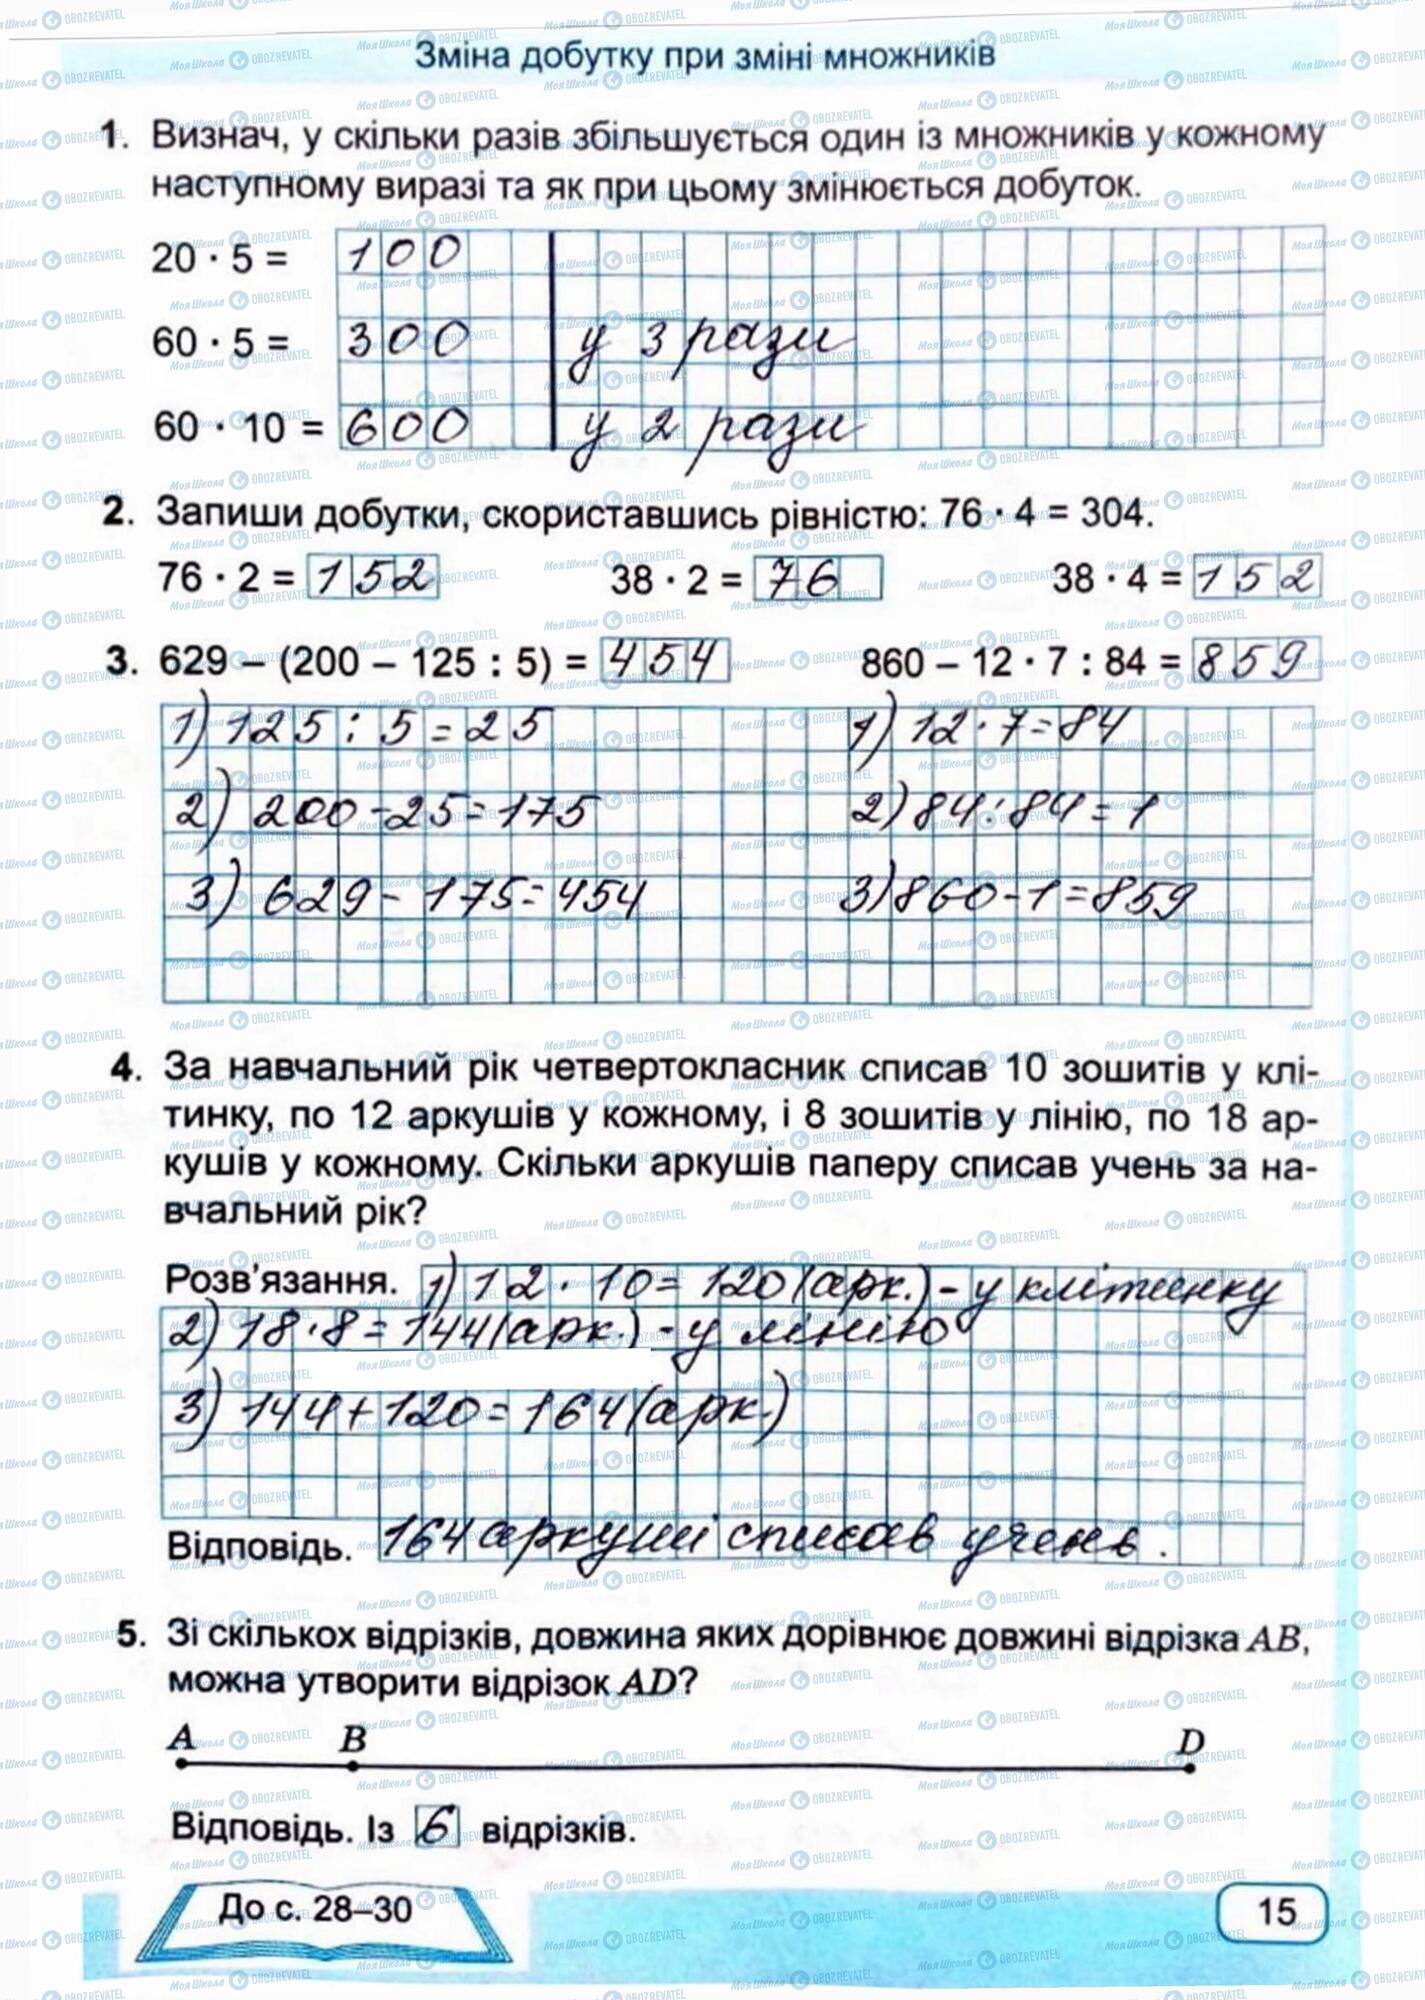 Зміна добутку при зміні множників
1. Визнач, у скільки разів збільшується один із множників у кожному
наступному виразі та як при цьому змінюється добуток.
20 · 5 = 100
60 · 5 = 300 у 3 рази
60 · 10 = 600 у 2 рази
2. Запиши добутки, скориставшись рівністю: 76 · 4 = 304.
76 · 2 = 152 38 · 2 = 76 38 · 4 = 152
3. 629 – (200 – 125 : 5) = 454 860 – 12 · 7 : 84 = 859
1) 125 : 5 = 25 1) 12 · 7 = 84
2) 200 - 25 = 175 2) 84 : 84 = 1
3) 629 - 175 = 454 3) 860 - 1 = 859
4. За навчальний рік четвертокласник списав 10 зошитів у клі-
тинку, по 12 аркушів у кожному, і 8 зошитів у лінію, по 18 ар-
кушів у кожному. Скільки аркушів паперу списав учень за на-
вчальний рік?
Розв’язання. 1) 12 · 10 = 120 (арк.) - у клітинку
2) 18 · 8 = 144 (арк.) - у лінію
3) 144 + 120 = 164 (арк.)
Відповідь. 164 аркуші списав учень.
5. Зі скількох відрізків, довжина яких дорівнює довжині відрізка AB,
можна утворити відрізок AD?
A B D
Відповідь. Із 6 відрізків.
До с. 28–30
15
Моя Школа OBOZREVATEL